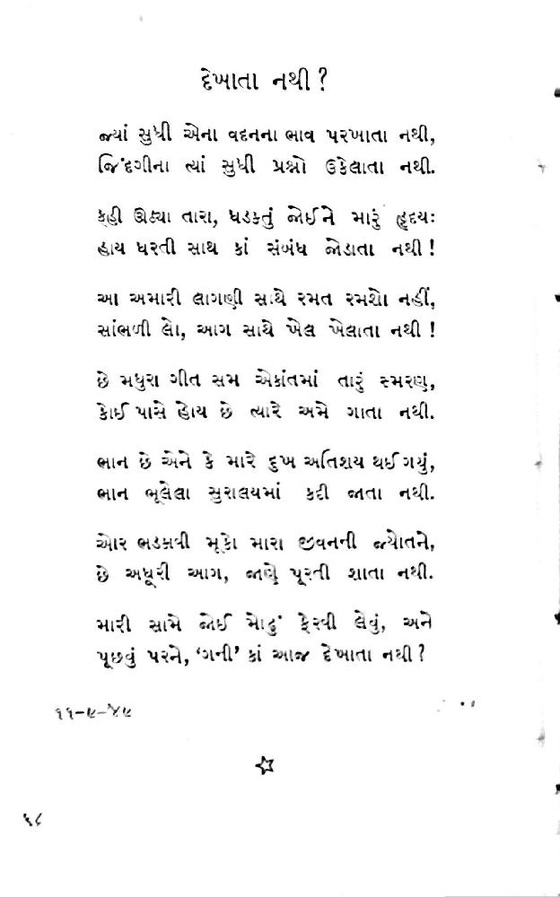 દેખાતા નથી?
જ્યાં સુધી એના વદનના ભાવ પરખાતા નથી,
જિંદગીના ત્યાં સુધી પ્રશ્નો ઉકેલાતા નથી.
કહી ઊઠ્યા તારા, ધડકતું જોઈને મારું હૃદયઃ
હાય ધરતી સાથ કાં સંબંધ જોડાતા નથી!
આ અમારી લાગણી સાથે રમત રમશો નહીં,
સાંભળી લો, આગ સાથે ખેલ ખેલાતા નથી!
છે મધુરા ગીત સમ એકાંતમાં તારું સ્મરણ,
કોઈ પાસે હોય છે ત્યારે અમે ગાતા નથી.
ભાન છે એને કે મારે દુખ અતિશય થઈ ગયું,
ભાન ભૂલેલા સુરાલયમાં કદી જાતા નથી.
ઓર ભડકાવી મૂકો મારા જીવનની જ્યોતને,
છે અધૂરી આગ, જાણે પૂરતી શાતા નથી.
મારી સામે જોઈ મોઢું ફેરવી લેવું, અને
પૂછવું પરને, ‘ગની’ કાં આજ દેખાતા નથી?
૧૧-૯-૪૯
૬૮